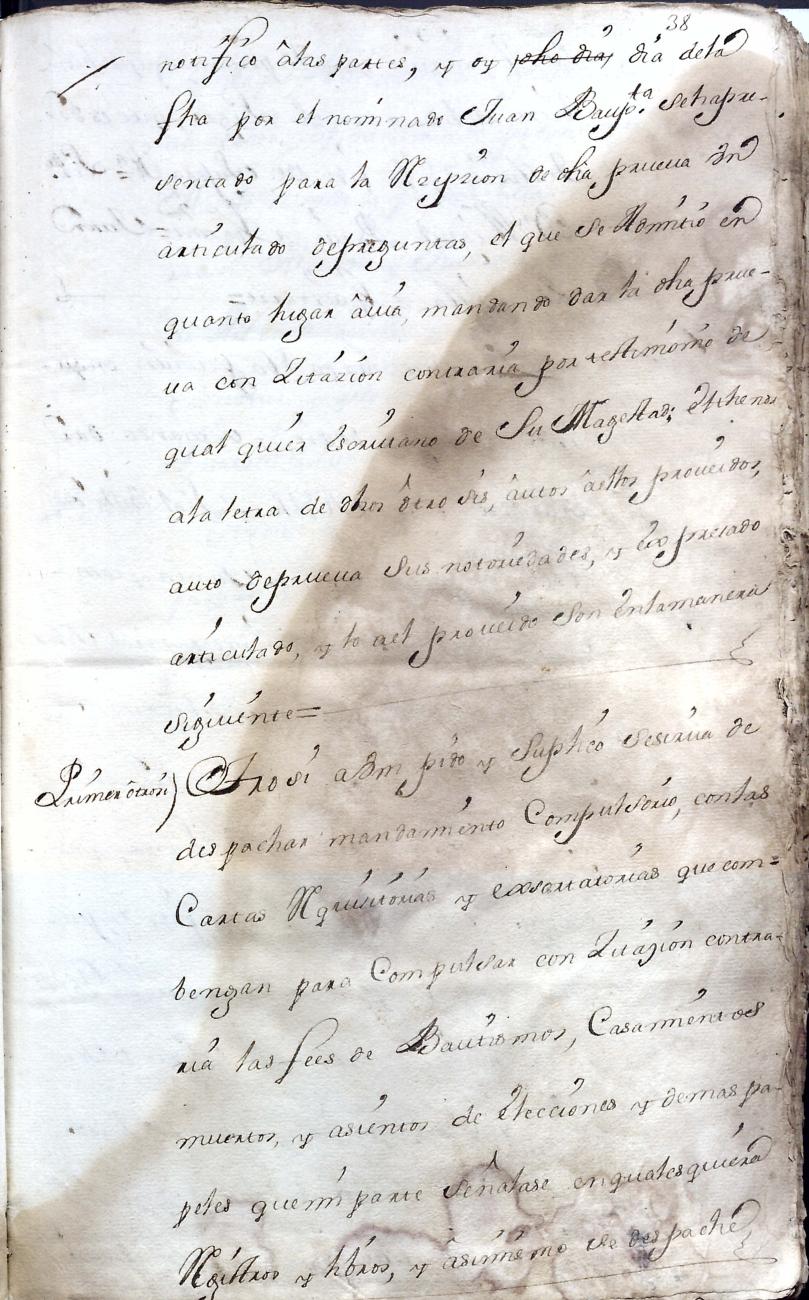 38
notifico â las partes, y oy pho dia, dia de la
fha por el nominado Juan Baup.ta se ha pre-
sentado para la Rezepzion de dha prueua Vn
articulado de preguntas, el que se Admitio en
quanto lugar âuia, mandando dar la dha prue-
ua con Zitazion contraria por testimonio de
qual quier Escriuano de Su Magestad; El thenor
a la letra de dhos ôtro sis, âutos âellos proueidos,
auto de prueua sus notoriedades, y Expresado
articulado, y lo a el proueido son En la manera
siguiente=
Primer ôtrosi) Otro si a Vm pido y suplico se sirua de
despachar mandamiento Compulsorio, con las
Cartas Requisitorias y exsortatorias que com=
bengan para Compulsar con Zitazion contra-
ria las fees de Bautismos, Casamientos
muertos, y asientos de Elecciones y demas pa-
peles que mi parte señalase en qualesquiera
Registros y libros, y âsimismo se despache